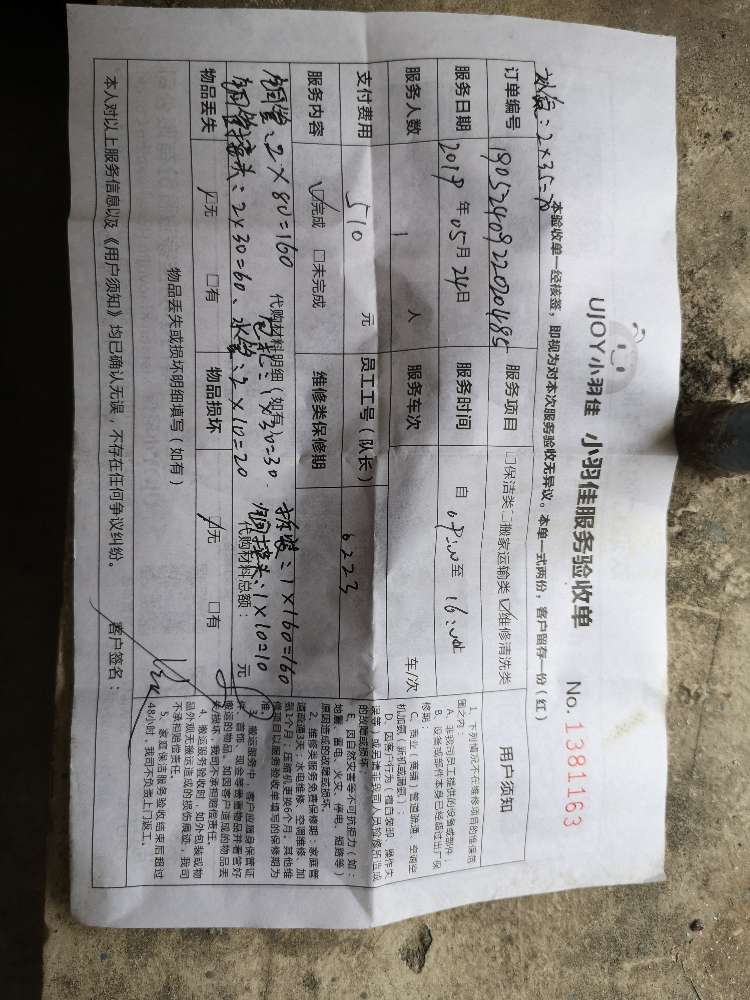 UJOY小羽佳 小羽佳服务验收单
No. 1381163
本验收单一经核签，即视为对本次服务验收无异议。本单一式两份，客户留存一份（红）
2×35=70
订单编号 190524092200204485 服务项目 □保洁类 □搬家运输类 ☑维修清洗类
服务日期 2019 年 05 月 24 日 服务时间 自 至 16:00止
服务人数 1 人 服务车次 车/次
支付费用 510 元 员工工号（队长） 6223
服务内容 ☑完成 □未完成 维修类保修期
代购材料明细（如有）
铜管：2×80=160
1×30=30
拆装：1×160=160
铜管接头：2×30=60、水管：2×10=20
铜接头：1×10=10
代购材料总额： 元
物品丢失 ☑无 □有 物品损坏 ☑无 □有
物品丢失或损坏明细填写（如有）
本人对以上服务信息以及《用户须知》均已确认无误，不存在任何争议纠纷。 客户签名：
用户须知
1、下列情况不在维修项目的维保范
围之内：
A、非我司员工提供的设备或部件
B、设备或部件本身已经超过出厂保
修期；
C、商业（商铺）管道疏通、空调空
机加氟（新机或漏氟）；
E、因自然灾害等不可抗拒力（如：
地震、雷电、火灾、停电、短路等）
原因造成的故障或损坏。
2、维修类服务免费保修期：家庭管
道疏通3天；水电维修、空调维修、加
氟1个月；压缩机更换6个月，其他维
修项目以服务验收单填写的保修期为
准。
3、搬运服务中，客户应随身保管证
件、首饰、现金等贵重物品并看管好
搬运的物品。如因客户造成的物品丢
失损坏，我司不承担赔偿责任。
4、搬运服务验收时，如外包装或物
品外观无搬运造成的损伤痕迹，我司
不承担赔偿责任。
5、家庭保洁服务验收结束后超过
48小时，我司不负责上门返工。